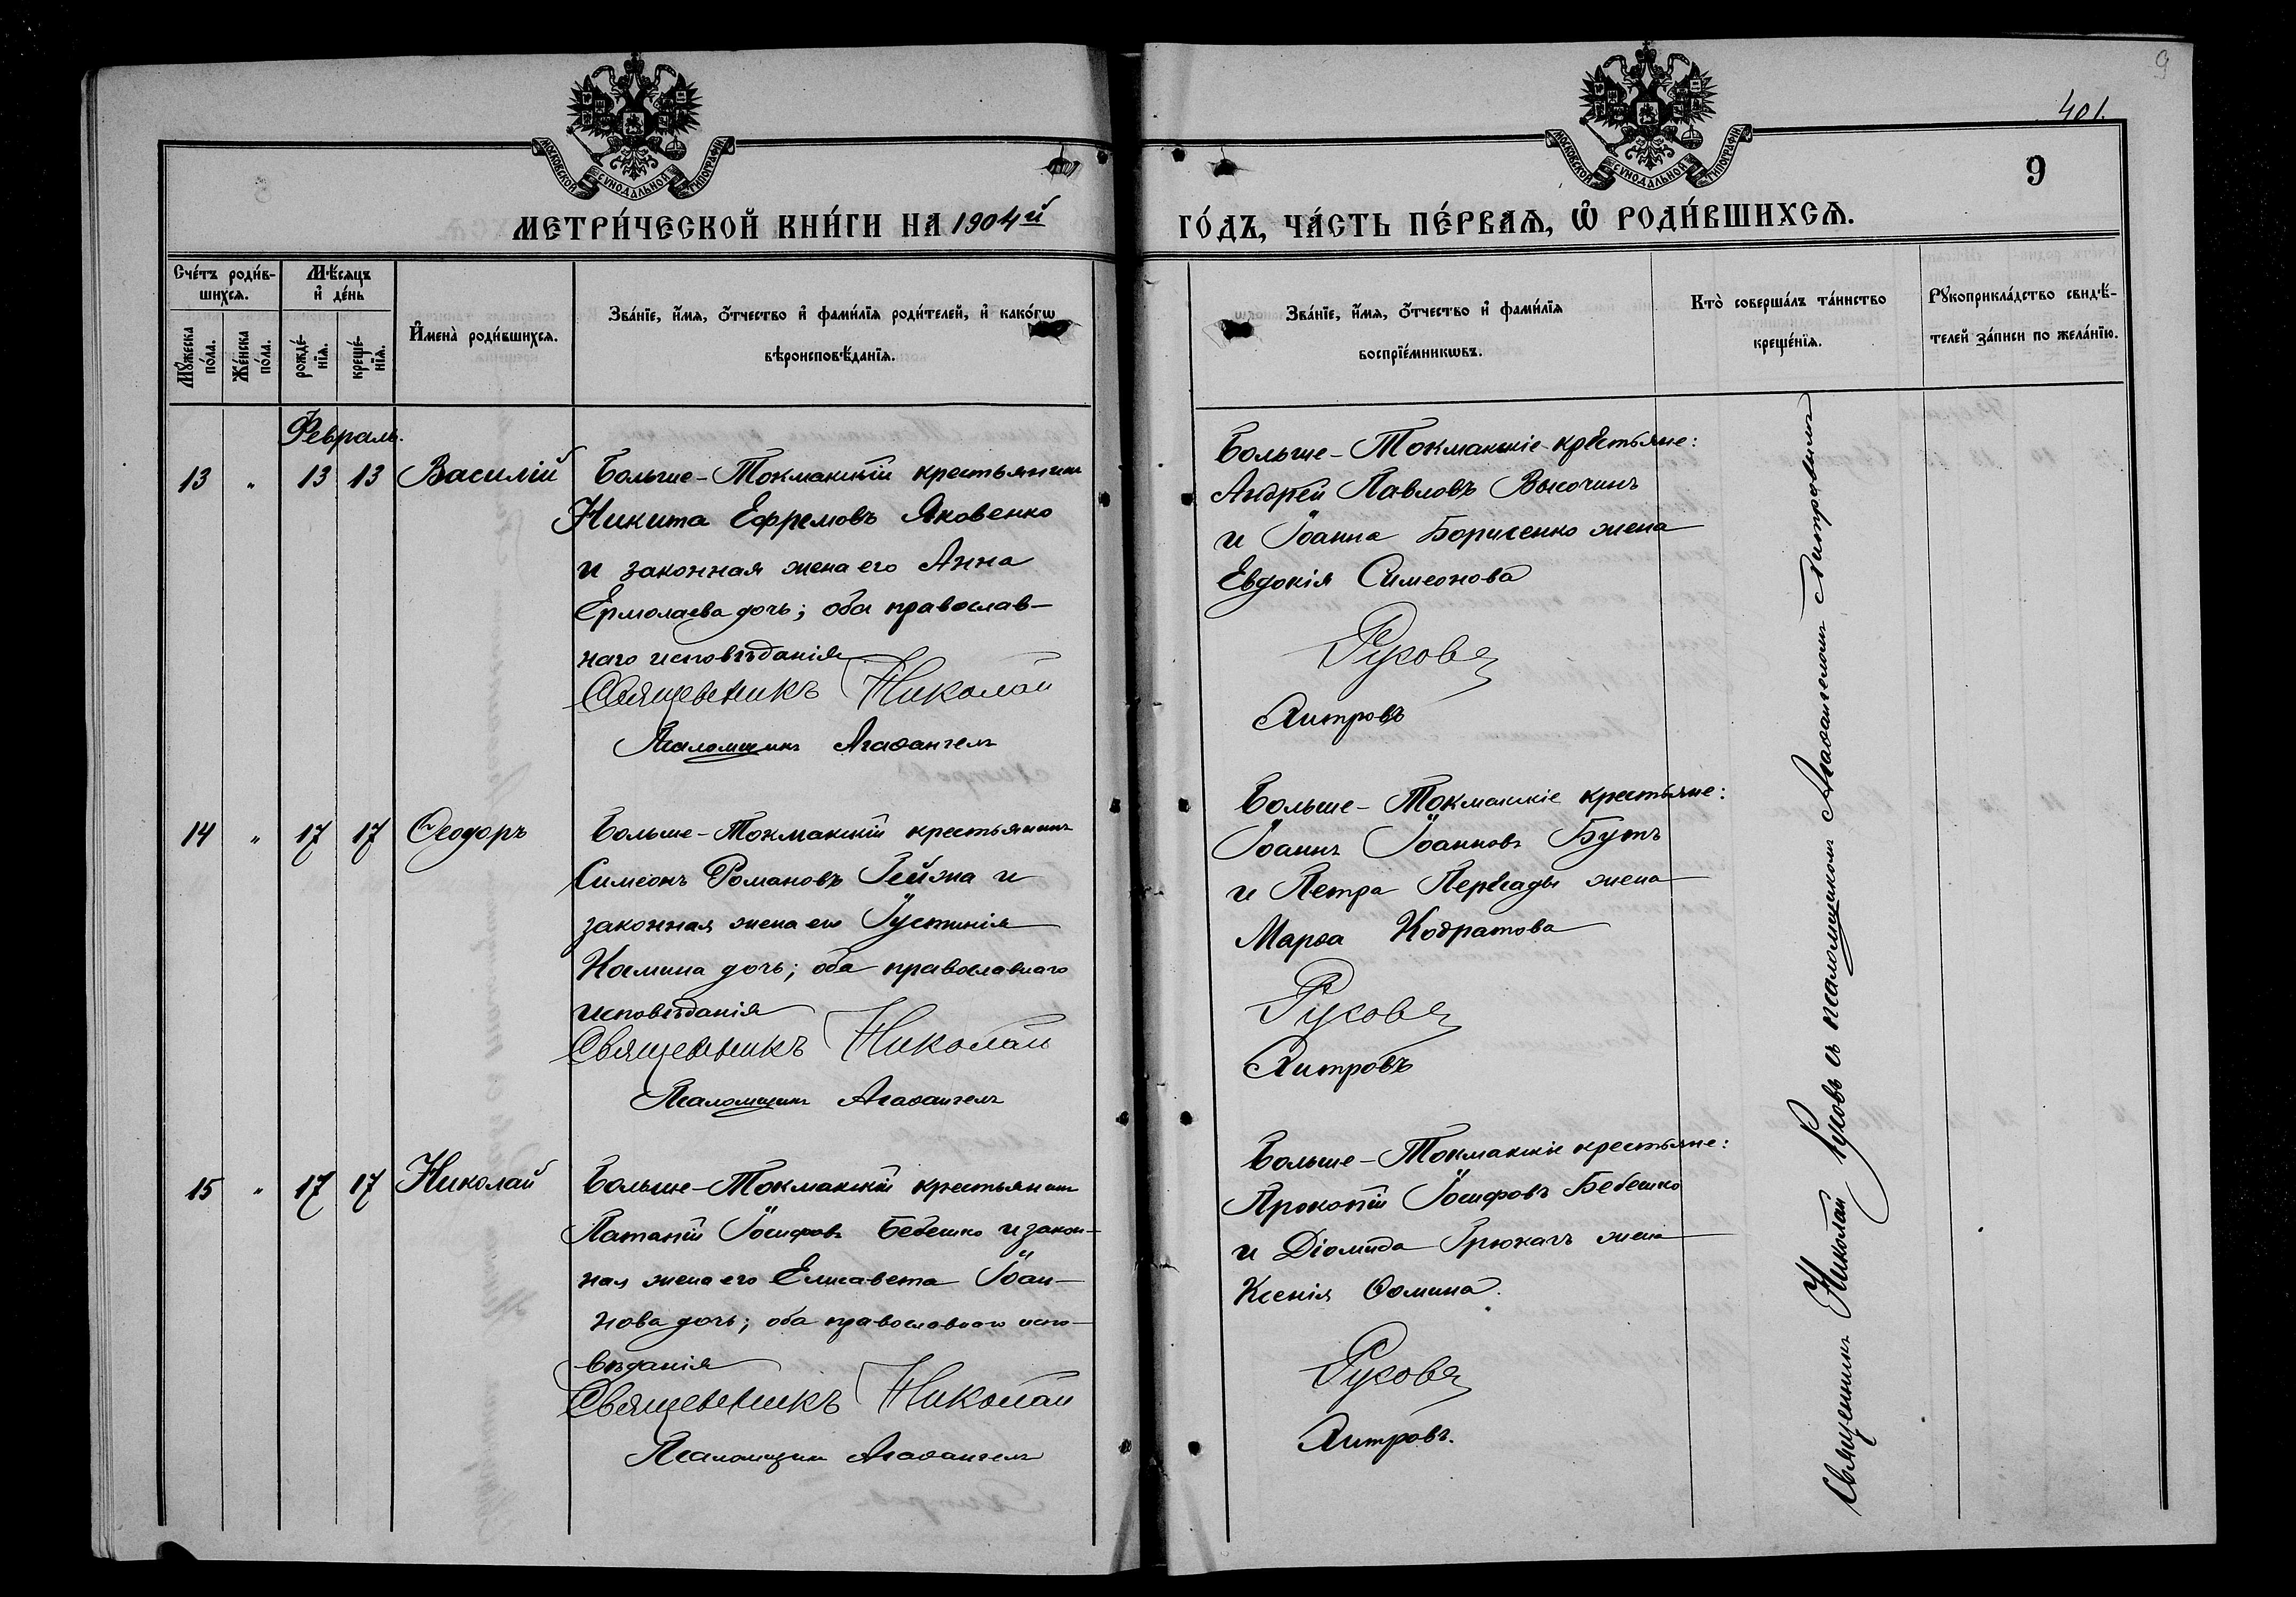 9
401.
МОСКОВСКОЙ СѴНОДАЛЬНОЙ ТИПОГРАФІИ
МОСКОВСКОЙ СѴНОДАЛЬНОЙ ТИПОГРАФІИ
9
МЕТРИ́ЧЕСКОЙ КНИ́ГИ НА 1904й
ГО́ДЪ, ЧА́СТЬ ПЕ́РВАѦ, Ѽ РОДИ́ВШИХСѦ.
Сче́тъ роди́в-
шихсѧ.
Мꙋ́жеска по́ла.
Же́нска по́ла.
Мѣ́сѧцъ
и҆ де́нь
рожде́-
нїѧ.
креще́-
нїѧ.
И҆мена̀ роди́вшихсѧ.
Зва́нїе, и҆́мѧ, ѻ҆́тчество и҆ фами́лїѧ роди́телей, и҆ како́гѡ
вѣроисповѣ́данїѧ.
Зва́нїе, и҆́мѧ, ѻ҆́тчество и҆ фами́лїѧ
воспрїе́мникѡвъ.
Кто̀ соверша́лъ та́инство
креще́нїѧ.
Рꙋкоприкла́дство свидѣ́-
телей за́писи по жела́нїю.
Февраль.
13 " 13 13 Василій
Больше-Токмакскій крестьянинъ
Никита Ефремовъ Яковенко
и законная жена его Анна
Ермолаева дочь; оба православ-
наго исповѣданія
Священникъ Николай
Псаломщикъ Агаѳангелъ
Больше-Токмакскіе крестьяне:
Андрей Павловъ Высочинъ
и Іоанна Борисенко жена
Евдокія Симеонова
Русовъ
Хитровъ
14 " 17 17 Ѳеодоръ
Больше-Токмакскій крестьянинъ
Симеонъ Романовъ Гейжа и
законная жена его Іустинія
Космина дочь; оба православнаго
исповѣданія
Священникъ Николай
Псаломщикъ Агаѳангелъ
Больше-Токмакскіе крестьяне:
Іоаннъ Іоанновъ Бутъ
и Петра Пересады жена
Марѳа Кодратова
Русовъ
Хитровъ
15 " 17 17 Николай
Больше-Токмакскій крестьянинъ
Патапій Іосифовъ Бебешко и закон-
ная жена его Елисавета Іоан-
нова дочь; оба православнаго испо-
вѣданія
Священникъ Николай
Псаломщикъ Агаѳангелъ
Больше-Токмакскіе крестьяне:
Прокопій Іосифовъ Бебешко
и Діомида Грюкачъ жена
Ксенія Ѳомина.
Русовъ
Хитровъ.
Священникъ Николай Русовъ съ псаломщикомъ Агаѳангеломъ Хитровымъ